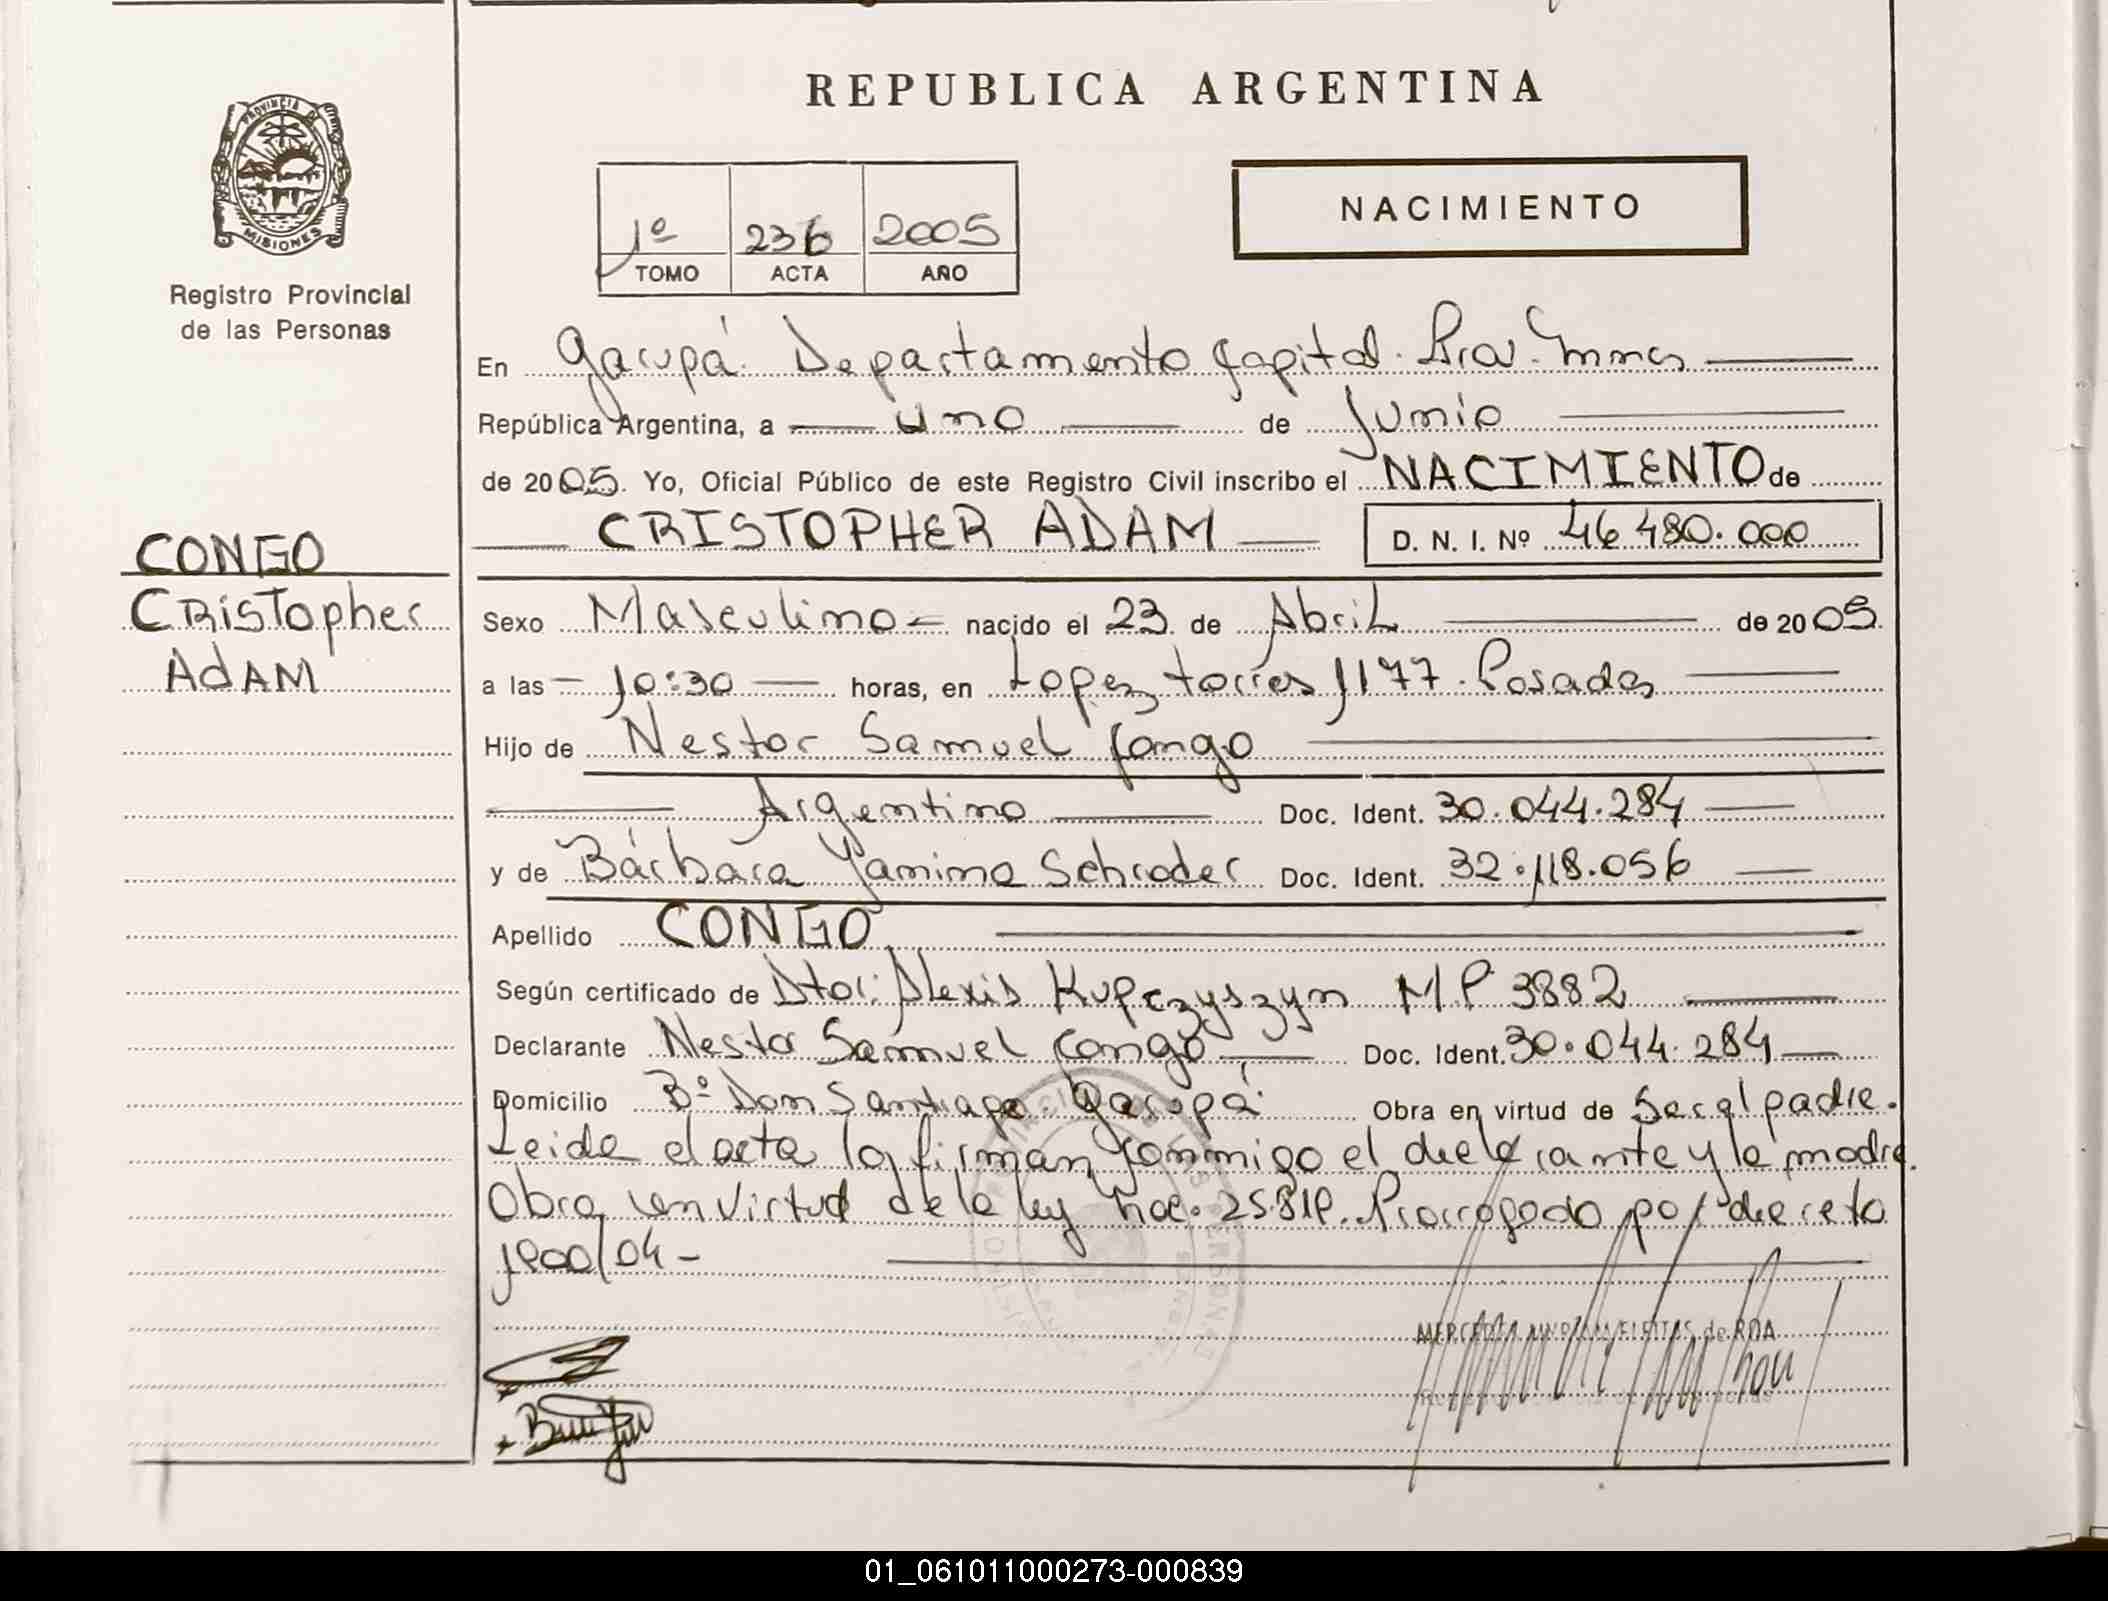 REPUBLICA ARGENTINA
PROVINCIA DE
MISIONES
Registro Provincial
de las Personas
1º 236 2005
TOMO ACTA AÑO
NACIMIENTO
En Garupá. Departamento Capital. Prov. Mnes
República Argentina, a uno de Junio
de 2005. Yo, Oficial Público de este Registro Civil inscribo el NACIMIENTO de
CRISTOPHER ADAM D. N. I. Nº 46.480.000
CONGO
CRisTopher
AdAM
Sexo Masculino nacido el 23 de Abril de 2005.
a las 10:30 horas, en Lopez torres 1177. Posadas
Hijo de Nestor Samuel Congo
Argentino Doc. Ident. 30.044.284
y de Bárbara Yanina Schroder Doc. Ident. 32.118.056
Apellido CONGO
Según certificado de Dtor: Alexis Kupczyszyn MP 3882
Declarante Nestor Samuel Congo Doc. Ident. 30.044.284
Domicilio Bº Don Santiago. Garupá Obra en virtud de Ser el padre.
Leida el acta la firman conmigo el declarante y la madre.
Obra en virtud de la ley nac. 25.819. Prorrogado por decreto
1900/04-
MERCEDES MYRIAM FLEITAS de ROA
01_061011000273-000839